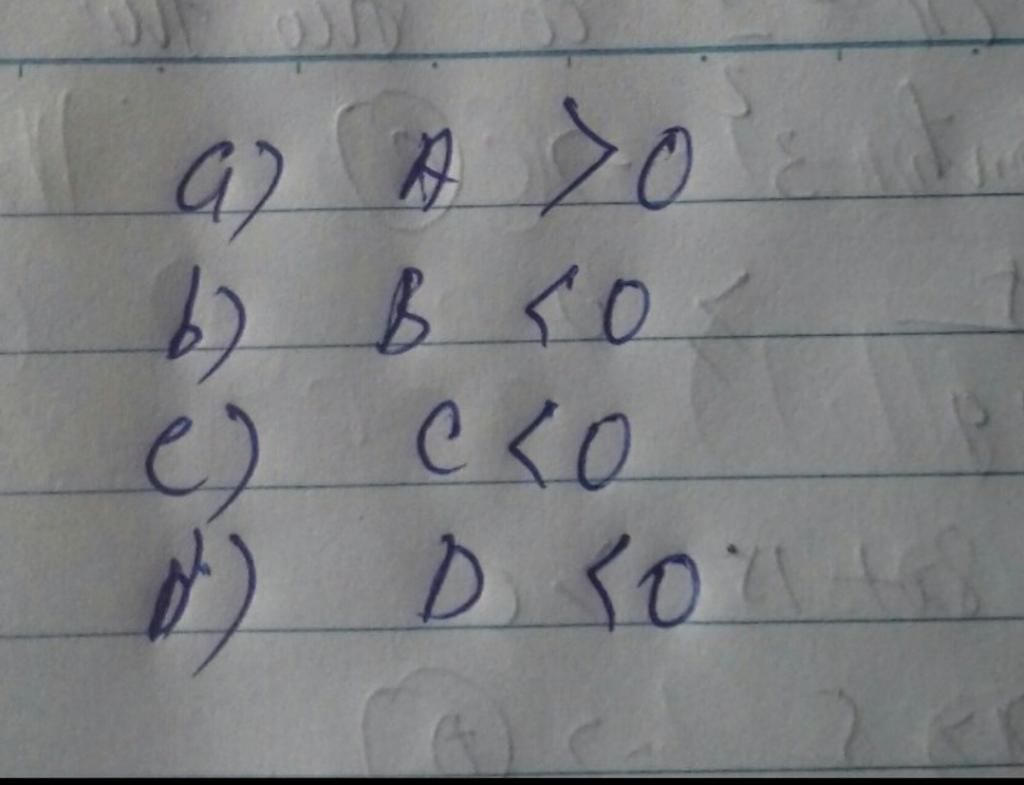 a) A > 0
b) B < 0
c) C < 0
d) D < 0